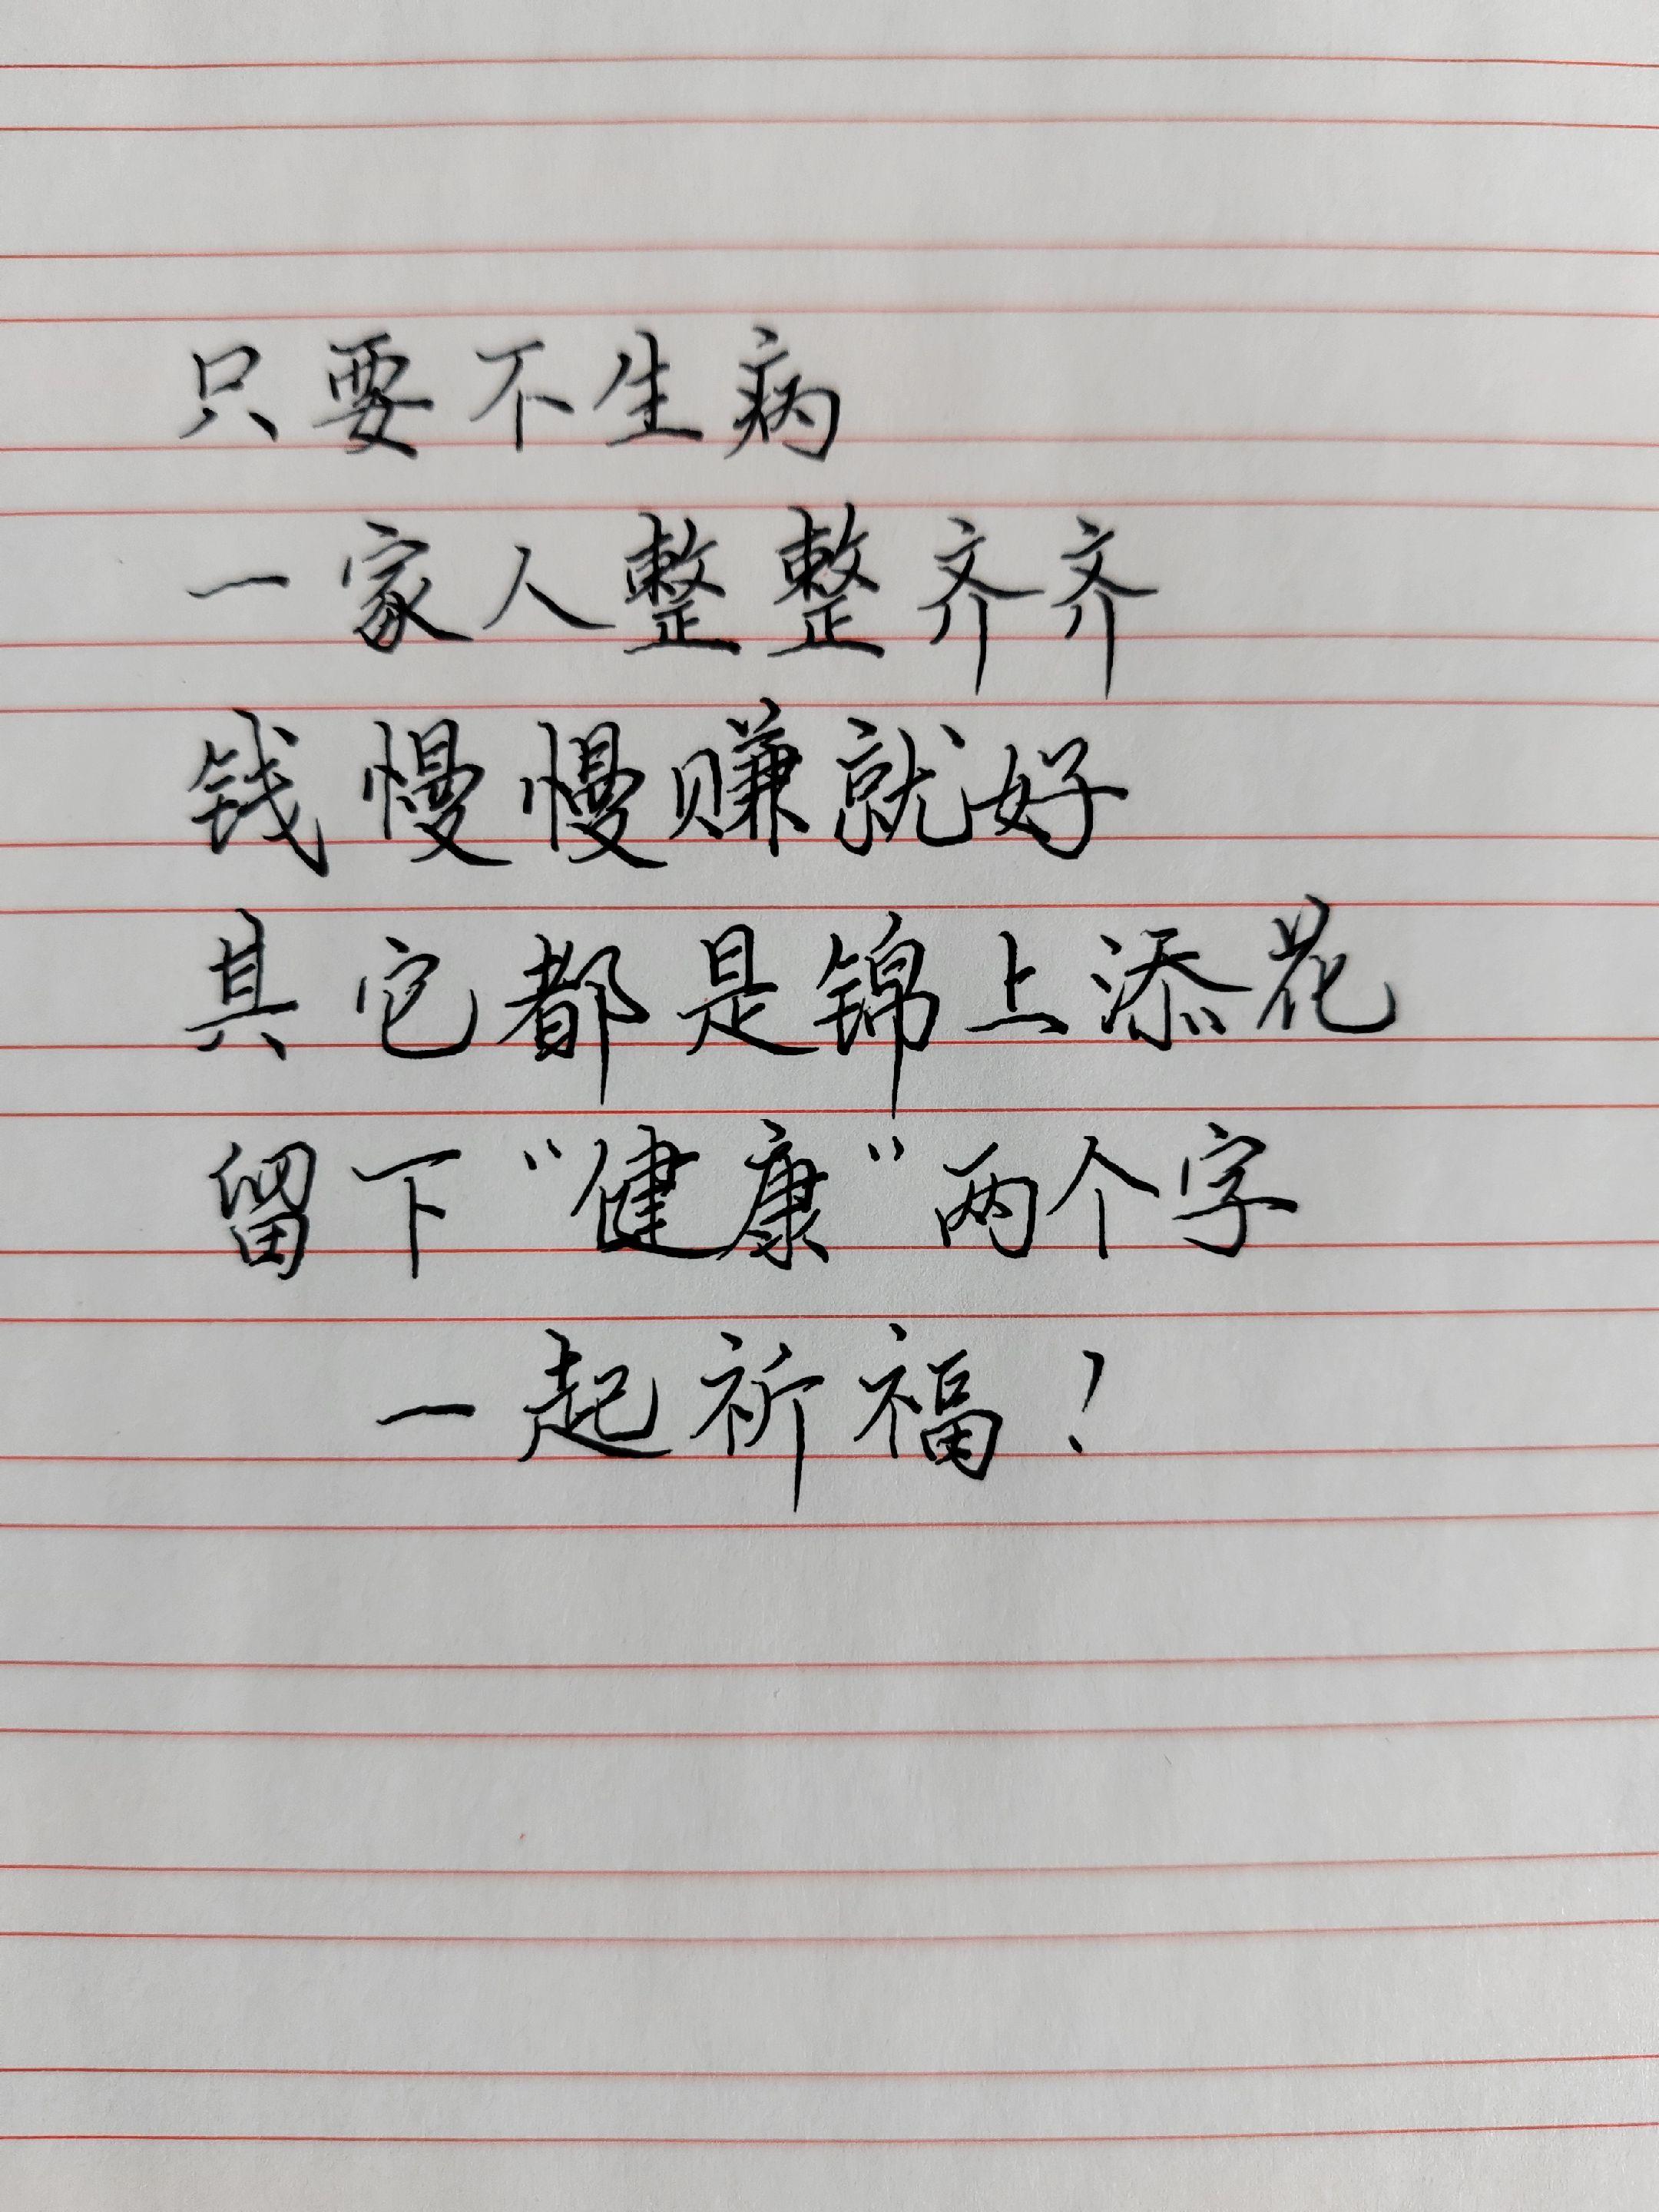 只要不生病
一家人整整齐齐
钱慢慢赚就好
其它都是锦上添花
留下“健康”两个字
一起祈福！